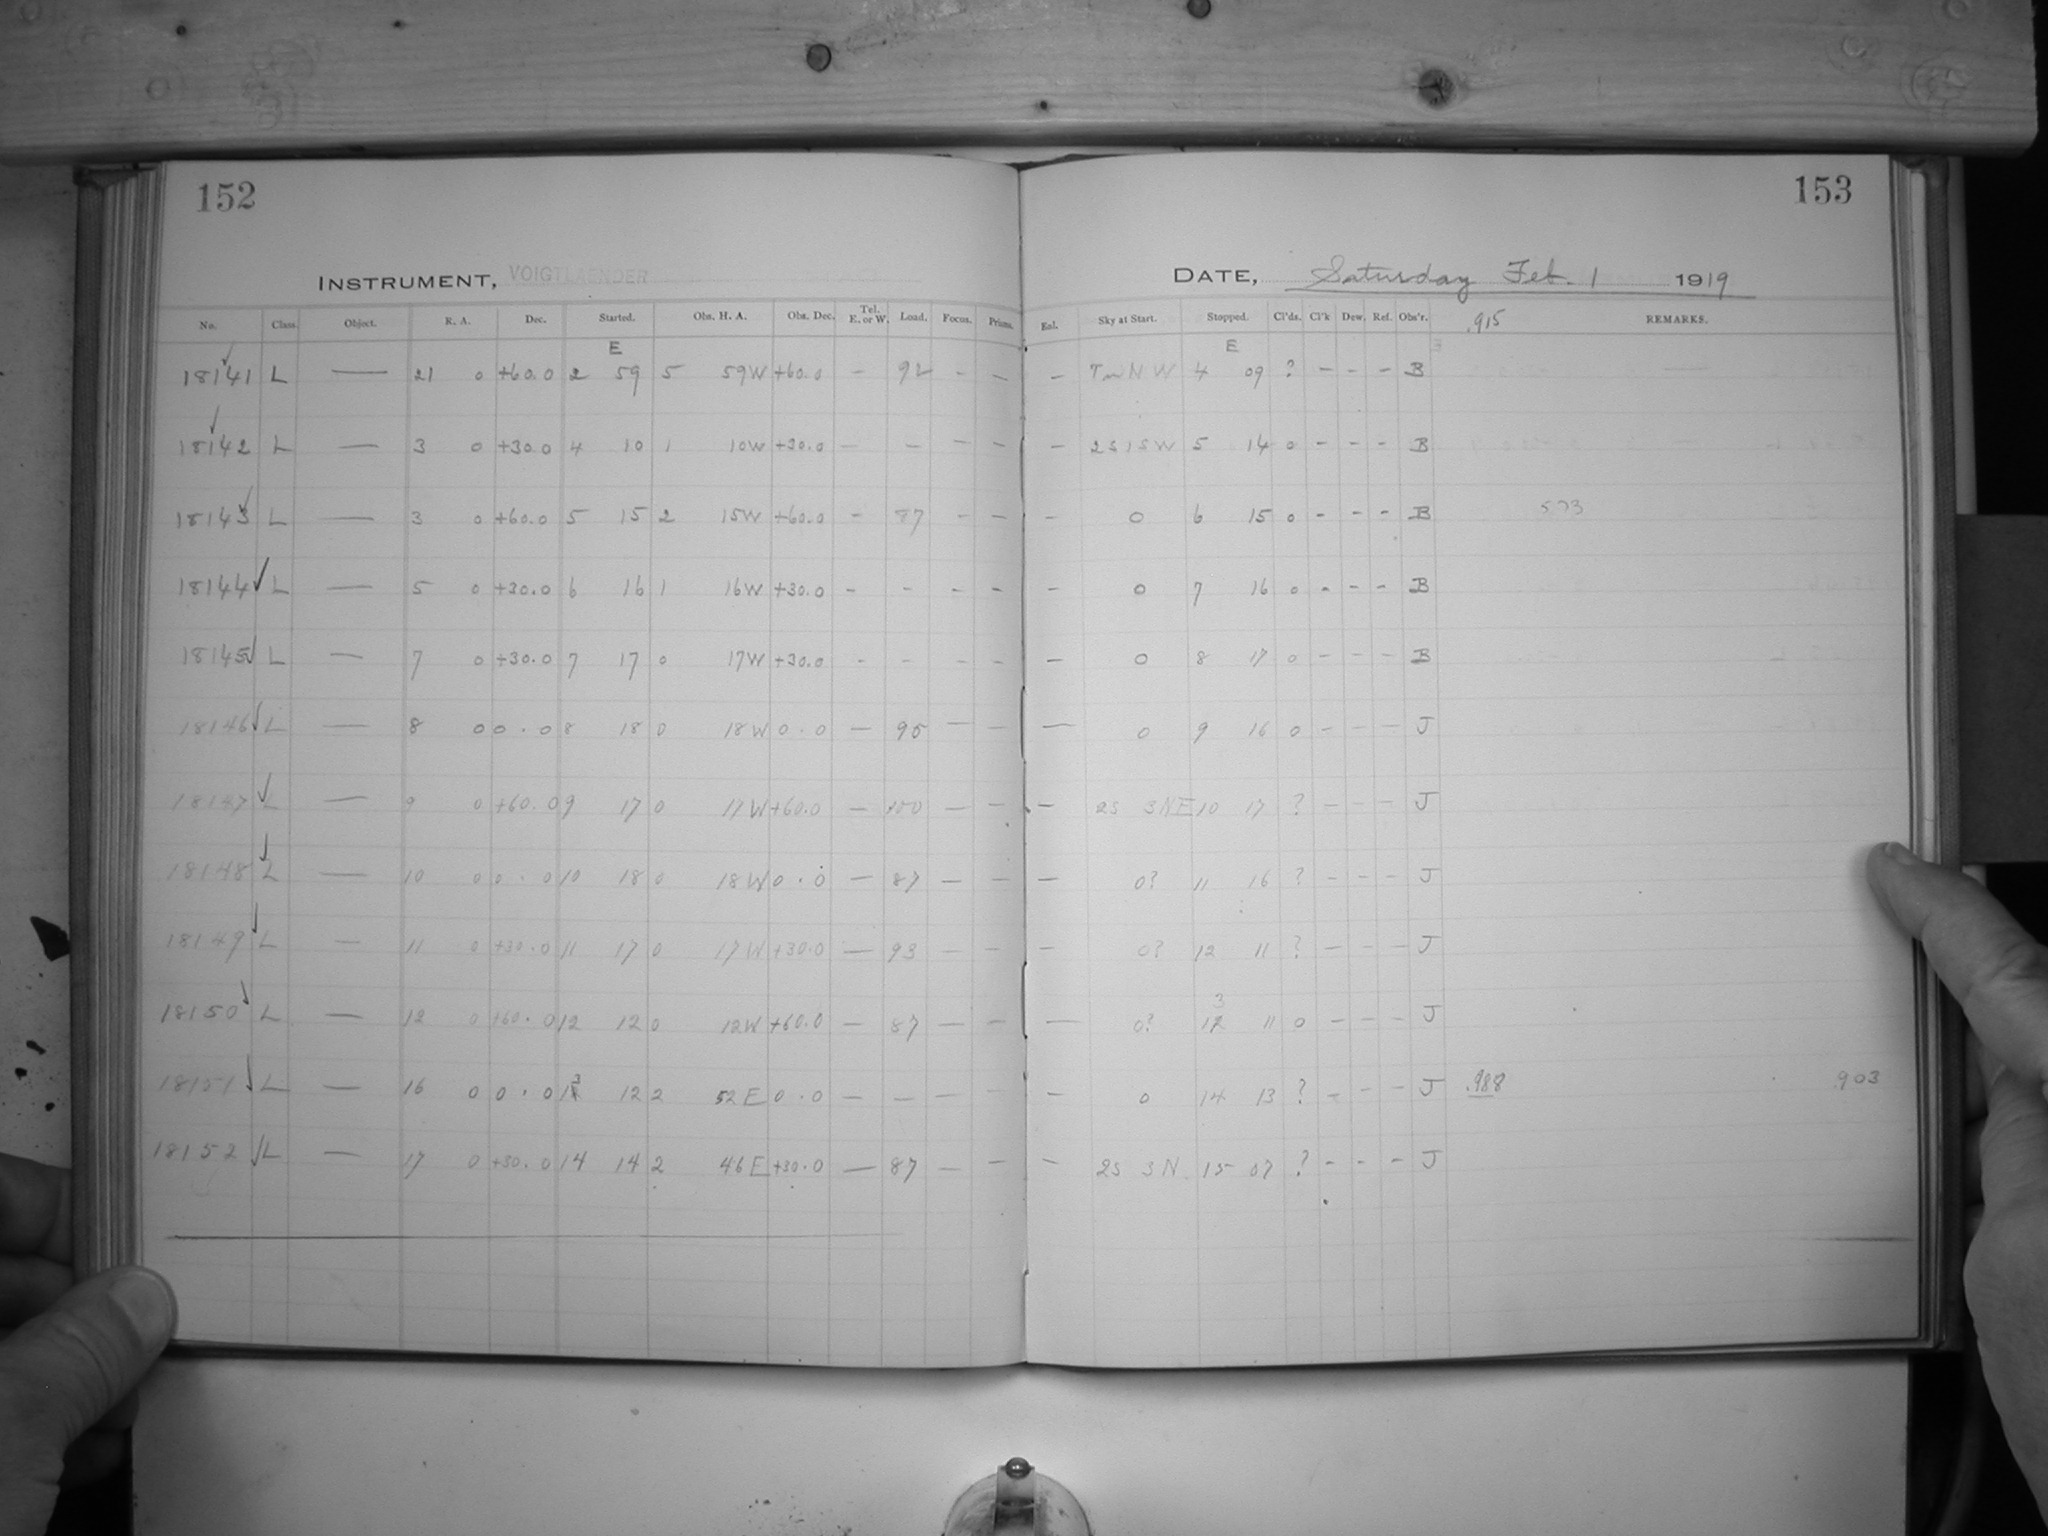 152
153
INSTRUMENT, VOIGTLAENDER
DATE, Saturday Feb. 1 1919
No. Class. Object. R. A. Dec. Started. Obs. H. A. Obs. Dec. Tel. E. or W. Load. Focus. Prisms. Enl. Sky at Start. Stopped. Cl'ds. Cl'k Dew. Ref. Obs'r. .915 REMARKS.
E E
18141 L — 21 0 +60.0 2 59 5 59W +60.0 - 92 - - - 4 09 ? - - - B
18142 L — 3 0 +30.0 4 10 1 10W +30.0 - - - - - 2S 1SW 5 14 0 - - - B
18143 L — 3 0 +60.0 5 15 2 15W +60.0 - 87 - - - 0 6 15 0 - - - B 573
18144 L — 5 0 +30.0 6 16 1 16W +30.0 - - - - - 0 7 16 0 - - - B
18145 L — 7 0 +30.0 7 17 0 17W +30.0 - - - - - 0 8 17 0 - - - B
18146 L — 8 0 0.0 8 18 0 18W 0.0 - 95 - - - 0 9 16 0 - - - J
18147 L — 9 0 +60.0 9 17 0 17W +60.0 - 100 - - - 2S 3NE 10 17 ? - - - J
18148 L — 10 0 0.0 10 18 0 18W 0.0 - 87 - - - 0? 11 16 ? - - - J
18149 L — 11 0 +30.0 11 17 0 17W +30.0 - 93 - - - 0? 12 11 ? - - - J
18150 L — 12 0 +60.0 12 12 0 12W +60.0 - 87 - - - 0? 13 11 0 - - - J
18151 L — 16 0 0.0 13 12 2 52E 0.0 - - - - - 0 14 13 ? - - - J .988 .903
18152 L — 17 0 +30.0 14 14 2 46E +30.0 - 87 - - - 2S 3N 15 07 ? - - - J